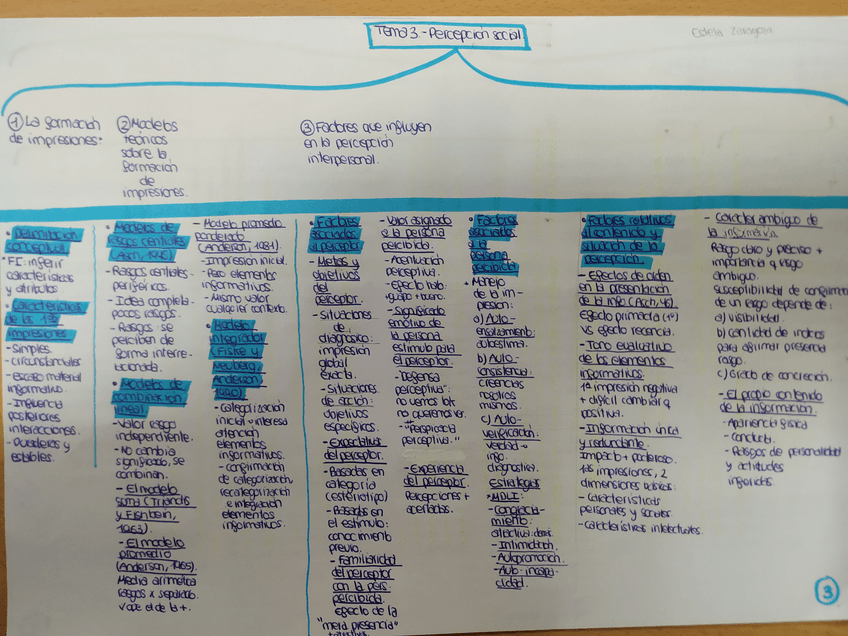 Tema 3 - Percepción social
① La formación
de impresiones.
② Modelos
teóricos
sobre la
formación
de
impresiones.
③ Factores que influyen
en la percepción
interpersonal.
• Delimitación
conceptual
• FI: inferir
características
y atributos
• Características
de las 1as
impresiones
- Simples
- Circunstanciales
- Escaso material
informativo.
- Influencia
posteriores
interacciones.
- Duraderas y
estables.
• Modelos de
rasgos centrales
(Asch, 1946)
- Rasgos centrales-
periféricos.
- Idea completa-
pocos rasgos.
- Rasgos se
perciben de
forma interre-
lacionada.
• Modelos de
combinación
lineal
- Valor rasgo
independiente.
- No cambia
significado, se
combinan.
- El modelo
suma (Triandis
y Fishbein,
1963).
- El modelo
promedio
(Anderson, 1965).
Media aritmética
rasgos x separado.
- Modelo promedio
ponderado
(Anderson, 1981).
- Impresión inicial.
- Peso elementos
informativos.
- Mismo valor
cualquier contexto.
• Modelo
integrador
(Fiske y
Neuberg,
Anderson,
1990)
- Categorización
inicial → interés
atención
elementos
informativos.
- Confirmación
de categorización,
recategorización
e integración
elementos
informativos.
• Factores
asociados
al perceptor
- Metas y
objetivos
del
perceptor.
- Situaciones
de
diagnóstico:
impresión
global
exacta.
- Situaciones
de acción:
objetivos
específicos.
- Expectativas
del perceptor.
- Basadas en
categoría
(estereotipo)
- Basadas en
el estímulo:
conocimiento
previo.
- Familiaridad
del perceptor
con la pers.
percibida.
Efecto de la
"mera presencia"
- Valor asignado
a la persona
percibida.
- Acentuación
perceptiva.
- Efecto halo:
guapo + bueno.
- Significado
emotivo de
la persona
estímulo para
el perceptor.
- Defensa
perceptiva:
no vemos lo q
no queremos ver.
- "Perspicacia
perceptiva."
- Experiencia
del perceptor.
Percepciones +
acertadas.
• Factores
asociados
a la
persona
percibida
• Manejo
de la im-
presión:
a) Auto-
ensalzamiento:
autoestima.
b) Auto-
consistencia:
creencias
nosotros
mismos.
c) Auto-
verificación:
verdad →
info.
diagnóstica.
Estrategias
• MDLI:
- Congracia-
miento:
- Intimidación.
- Autopromoción.
- Auto-incapa-
cidad.
• Factores relativos
al contenido y
situación de la
percepción.
- Efectos de orden
en la presentación
de la info (Asch, 46).
Efecto primacía (1º)
vs efecto recencia.
- Tono evaluativo
de los elementos
informativos.
1ª impresión negativa
+ difícil cambiar q
positiva.
- Información única
y redundante.
Impacto + poderoso.
1as impresiones, 2
dimensiones básicas:
- Características
personales y sociales.
- Características intelectuales.
- Carácter ambiguo de
la informativa
Rasgo claro y preciso +
importancia q rasgo
ambiguo.
Susceptibilidad de confirmación
de un rasgo depende de:
a) Visibilidad.
b) Cantidad de indicios
para afirmar presencia
rasgo.
c) Grado de concreción.
- El propio contenido
de la información.
- Apariencia física
- Conducta.
- Rasgos de personalidad
y actitudes
inferidas.
3